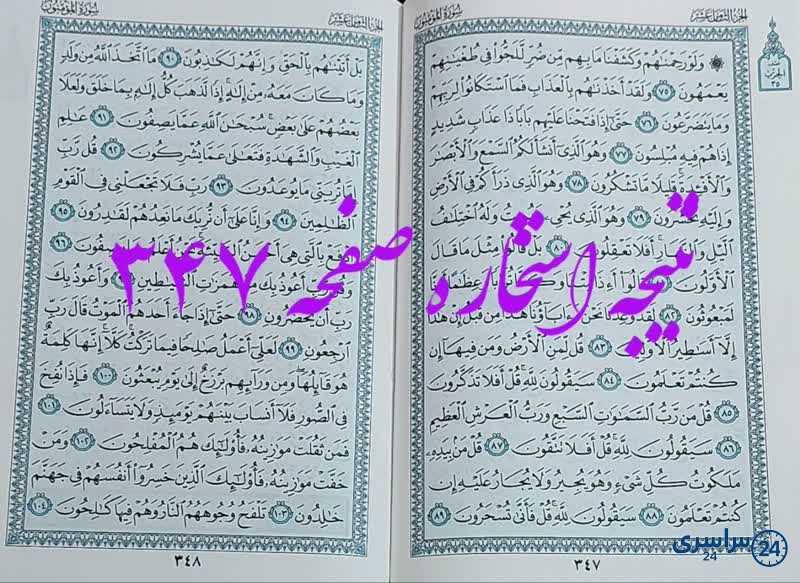 الجزء الثامن عشر
سورة المؤمنون
۞ وَلَوْ رَحِمْنَٰهُمْ وَكَشَفْنَا مَا بِهِم مِّن ضُرٍّ لَّلَجُّوا۟ فِى طُغْيَٰنِهِمْ
يَعْمَهُونَ ٧٥ وَلَقَدْ أَخَذْنَٰهُم بِٱلْعَذَابِ فَمَا ٱسْتَكَانُوا۟ لِرَبِّهِمْ
وَمَا يَتَضَرَّعُونَ ٧٦ حَتَّىٰٓ إِذَا فَتَحْنَا عَلَيْهِم بَابًا ذَا عَذَابٍ شَدِيدٍ
إِذَا هُمْ فِيهِ مُبْلِسُونَ ٧٧ وَهُوَ ٱلَّذِىٓ أَنشَأَ لَكُمُ ٱلسَّمْعَ وَٱلْأَبْصَٰرَ
وَٱلْأَفْـِٔدَةَ ۚ قَلِيلًا مَّا تَشْكُرُونَ ٧٨ وَهُوَ ٱلَّذِى ذَرَأَكُمْ فِى ٱلْأَرْضِ
وَإِلَيْهِ تُحْشَرُونَ ٧٩ وَهُوَ ٱلَّذِى يُحْىِۦ وَلَهُ ٱخْتِلَٰفُ
ٱلَّيْلِ أَفَلَا تَعْقِلُونَ ٨٠ بَلْ قَالُوا۟ مِثْلَ مَا قَالَ
ٱلْأَوَّلُونَ
لَمَبْعُوثُونَ ٨٢ لَقَدْ وُعِدْنَا نَحْنُ وَءَابَآؤُنَا هَٰذَا مِن قَبْلُ إِنْ هَٰذَآ
إِلَّآ أَسَٰطِيرُ ٱلْأَوَّلِينَ ٨٣ قُل لِّمَنِ ٱلْأَرْضُ وَمَن فِيهَآ إِن
كُنتُمْ تَعْلَمُونَ ٨٤ سَيَقُولُونَ لِلَّهِ ۚ قُلْ أَفَلَا تَذَكَّرُونَ
٨٥ قُلْ مَن رَّبُّ ٱلسَّمَٰوَٰتِ ٱلسَّبْعِ وَرَبُّ ٱلْعَرْشِ ٱلْعَظِيمِ
٨٦ سَيَقُولُونَ لِلَّهِ ۚ قُلْ أَفَلَا تَتَّقُونَ ٨٧ قُلْ مَنۢ بِيَدِهِۦ
مَلَكُوتُ كُلِّ شَىْءٍ وَهُوَ يُجِيرُ وَلَا يُجَارُ عَلَيْهِ إِن
كُنتُمْ تَعْلَمُونَ ٨٨ سَيَقُولُونَ لِلَّهِ ۚ قُلْ فَأَنَّىٰ تُسْحَرُونَ ٨٩
٣٤٧
الجزء الثامن عشر
سورة المؤمنون
بَلْ أَتَيْنَٰهُم بِٱلْحَقِّ وَإِنَّهُمْ لَكَٰذِبُونَ ٩٠ مَا ٱتَّخَذَ ٱللَّهُ مِن وَلَدٍ
وَمَا كَانَ مَعَهُۥ مِنْ إِلَٰهٍ ۚ إِذًا لَّذَهَبَ كُلُّ إِلَٰهٍۭ بِمَا خَلَقَ وَلَعَلَا
بَعْضُهُمْ عَلَىٰ بَعْضٍ ۚ سُبْحَٰنَ ٱللَّهِ عَمَّا يَصِفُونَ ٩١ عَٰلِمِ
ٱلْغَيْبِ وَٱلشَّهَٰدَةِ فَتَعَٰلَىٰ عَمَّا يُشْرِكُونَ ٩٢ قُل رَّبِّ
إِمَّا تُرِيَنِّى مَا يُوعَدُونَ ٩٣ رَبِّ فَلَا تَجْعَلْنِى فِى ٱلْقَوْمِ
ٱلظَّٰلِمِينَ ٩٤ وَإِنَّا عَلَىٰٓ أَن نُّرِيَكَ مَا نَعِدُهُمْ لَقَٰدِرُونَ ٩٥
ٱدْفَعْ بِٱلَّتِى هِىَ أَحْسَنُ ٱلسَّيِّئَةَ ۚ نَحْنُ أَعْلَمُ بِمَا يَصِفُونَ ٩٦
وَقُل رَّبِّ أَعُوذُ بِكَ مِنْ هَمَزَٰتِ ٱلشَّيَٰطِينِ وَأَعُوذُ بِكَ
رَبِّ أَن يَحْضُرُونِ ٩٨ حَتَّىٰٓ إِذَا جَآءَ أَحَدَهُمُ ٱلْمَوْتُ قَالَ رَبِّ
ٱرْجِعُونِ ٩٩ لَعَلِّىٓ أَعْمَلُ صَٰلِحًا فِيمَا تَرَكْتُ ۚ كَلَّآ ۚ إِنَّهَا كَلِمَةٌ
هُوَ قَآئِلُهَا ۖ وَمِن وَرَآئِهِم بَرْزَخٌ إِلَىٰ يَوْمِ يُبْعَثُونَ ١٠٠ فَإِذَا نُفِخَ
فِى ٱلصُّورِ فَلَآ أَنسَابَ بَيْنَهُمْ يَوْمَئِذٍ وَلَا يَتَسَآءَلُونَ ١٠١
فَمَن ثَقُلَتْ مَوَٰزِينُهُۥ فَأُو۟لَٰٓئِكَ هُمُ ٱلْمُفْلِحُونَ ١٠٢ وَمَنْ
خَفَّتْ مَوَٰزِينُهُۥ فَأُو۟لَٰٓئِكَ ٱلَّذِينَ خَسِرُوٓا۟ أَنفُسَهُمْ فِى جَهَنَّمَ
خَٰلِدُونَ ١٠٣ تَلْفَحُ وُجُوهَهُمُ ٱلنَّارُ وَهُمْ فِيهَا كَٰلِحُونَ ١٠٤
٣٤٨
نتیجه استخاره صفحه ۳۴۷
سراسری 24
24